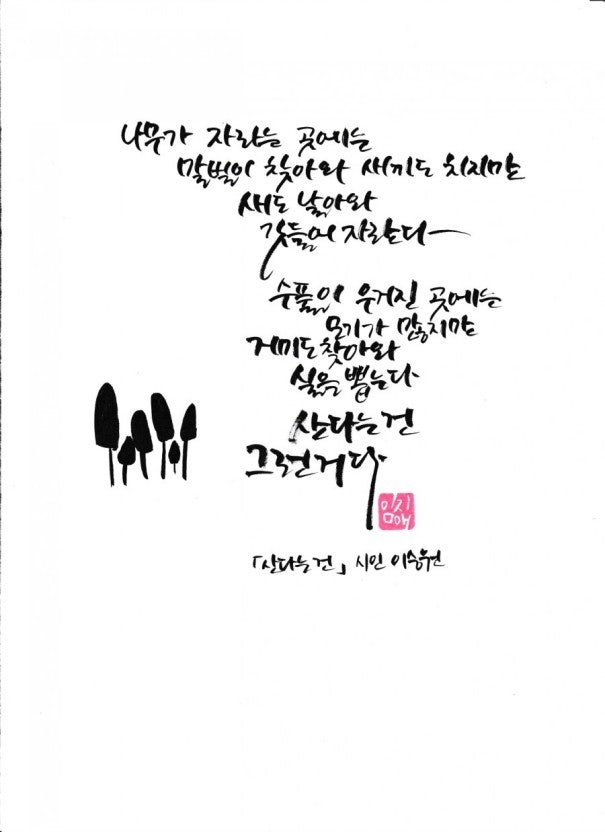 나무가 자라는 곳에는
말벌이 찾아와 새끼도 치지만
새도 날아와
깃들어 자란다
수풀이 우거진 곳에는
모기가 많치만
거미도 찾아와
실을 뽑는다
산다는건
그런거다
임지매
「산다는건」 시인 이승원